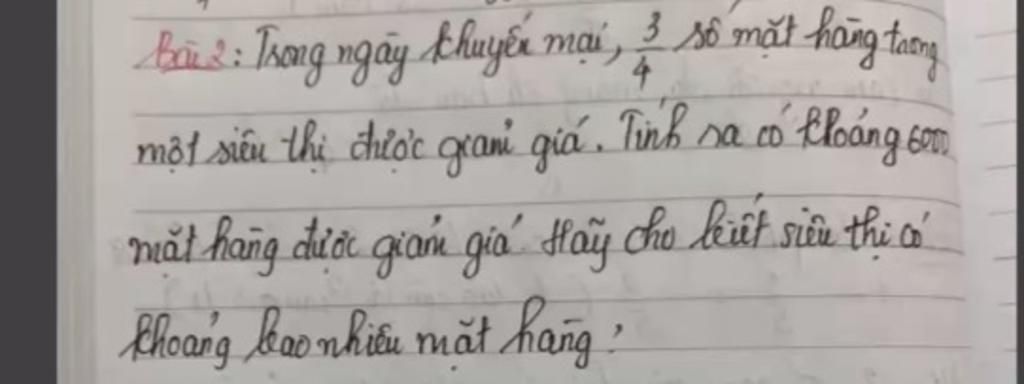 Bài 2: Trong ngày khuyến mại, 3/4 số mặt hàng trong
một siêu thị được giảm giá. Tính ra có khoảng 6000
mặt hàng được giảm giá. Hãy cho biết siêu thị có
khoảng bao nhiêu mặt hàng?